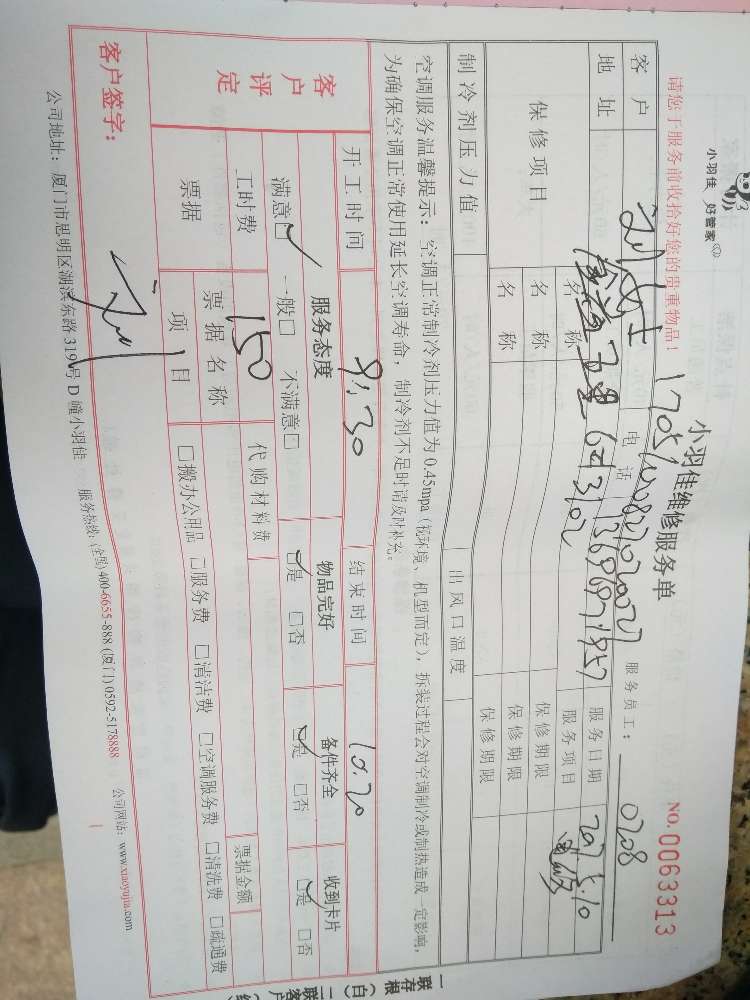 小羽佳 好管家
小羽佳维修服务单
NO.0063313
请您于服务前收拾好您的贵重物品！
服务员工： 0208
客户 电话 服务日期
地址 服务项目
保修项目 名称 保修期限
名称 保修期限
名称 保修期限
制冷剂压力值 出风口温度
空调服务温馨提示： 空调正常制冷剂压力值为0.45mpa（视环境、机型而定），拆装过程会对空调制冷或制热造成一定影响，
为确保空调正常使用延长空调寿命，制冷剂不足时请及时补充。
开工时间 8:30 结束时间 10.20
客户评定 服务态度 物品完好 备件齐全 收到卡片
满意☑ 一般□ 不满意□ ☑是 □否 ☑是 □否 ☑是 □否
工时费 150 代购材料费
票据 票据名称 票据金额
项目 □搬办公用品 □服务费 □清洁费 □空调服务费 □清洗费 □疏通费
客户签字：
公司地址：厦门市思明区湖滨东路319号D幢小羽佳 服务热线：(全国)400-6655-888 (厦门)0592-5178888 公司网站：www.xiaoyujia.com
一联存根（白）二联客户